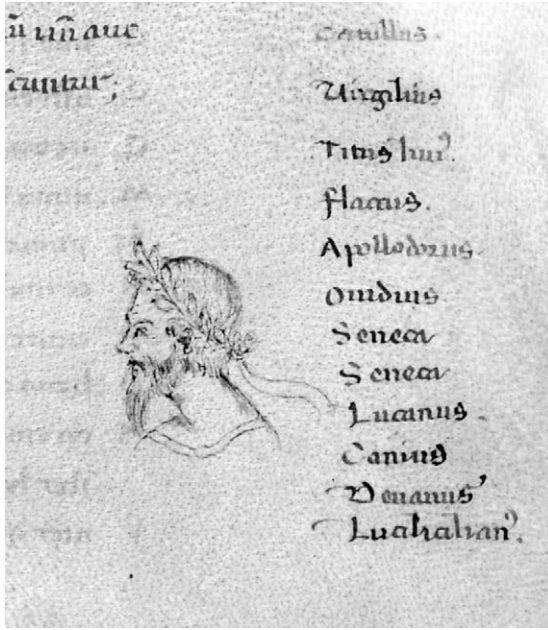 Catullus.
Uirgilius
Titus liuiꝰ.
flaccus.
Apollodorus.
Ouidius
Seneca
Seneca
Lucanus.
Canius
Decianus